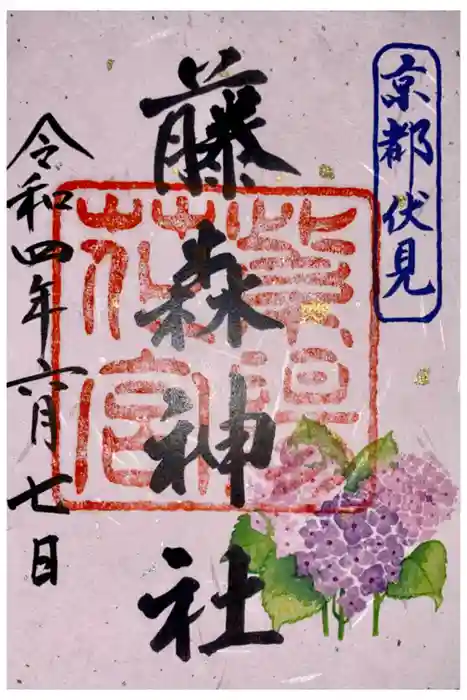 京都伏見
藤森神社
令和四年六月七日
紫陽花宮